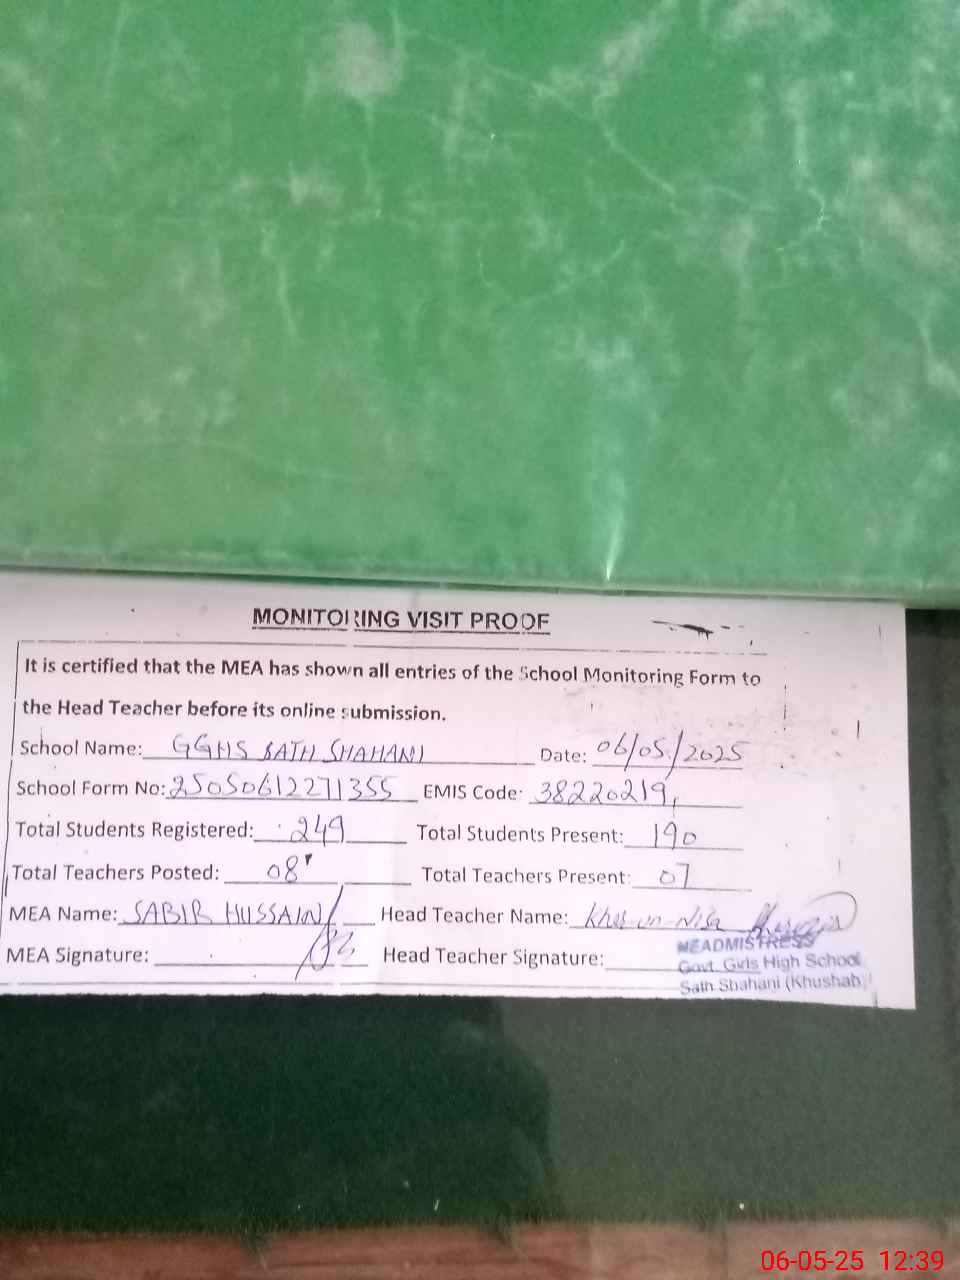 MONITORING VISIT PROOF
It is certified that the MEA has shown all entries of the School Monitoring Form to
the Head Teacher before its online submission.
School Name: GGHS SATH SHAHANI Date: 06/05/2025
School Form No: 25050612271355 EMIS Code: 38220219
Total Students Registered: 249 Total Students Present: 190
Total Teachers Posted: 08 Total Teachers Present: 07
MEA Name: SABIR HUSSAIN Head Teacher Name: Kher-un-Nisa
MEA Signature: Head Teacher Signature:
HEADMISTRESS
Govt. Girls High School
Sath Shahani (Khushab)
06-05-25 12:39